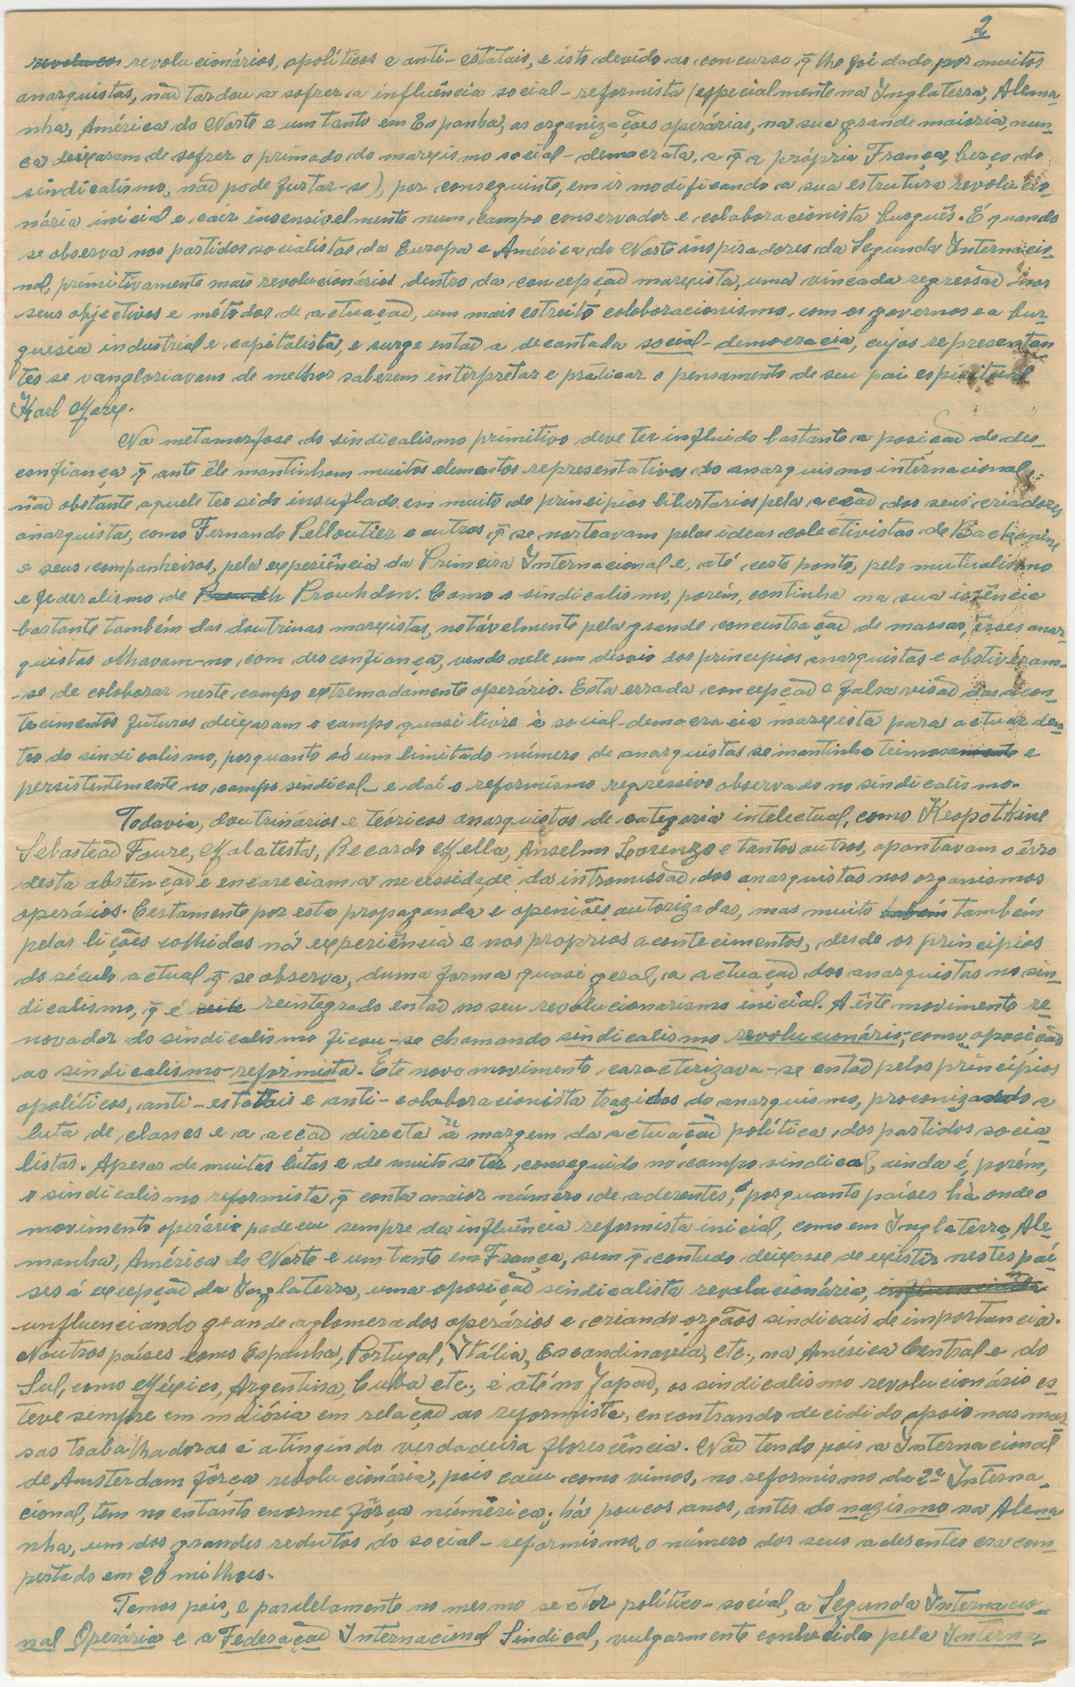 2
revolucos revolucionários, apolíticos e anti-estatais, e isto devido ao concurso q̃ lhe foi dado por muitos
anarquistas, não tardou a sofrer a influência social-reformista (especialmente na Inglaterra, Alema-
nha, América do Norte e um tanto em Espanha, as organizações operárias, na sua grande maioria, nun-
ca deixaram de sofrer o primado do marxismo social-democrata, a q̃ a própria França, berço do
sindicalismo, não pode furtar-se), por conseguinte, em ir modificando a sua estrutura revolucio-
nária inicial e cair insensivelmente num campo conservador e colaboracionista burguês. É quando
se observa nos partidos socialistas da Europa e América do Norte inspiradores da Segunda Internacio-
nal, primitivamente mais revolucionários dentro da concepção marxista, uma vincada regressão nos
seus objectivos e métodos de actuação, um mais estreito colaboracionismo com os governos e a bur-
guesia industrial e capitalista, e surge então a decantada social-democracia, cujos representan
tes se vangloriavam de melhor saberem interpretar e praticar o pensamento de seu pai espiritual
Karl Marx.
Na metamorfose do sindicalismo primitivo deve ter influido bastante a posição de des-
confiança q̃ ante êle mantinham muitos elementos representativos do anarquismo internacional,
não obstante aquele ter sido insuflado em muito do principios libertarios pela acção dos seus criadores
anarquistas, como Fernando Pelloutier e outros, q̃ se norteavam pelas ideas colectivistas de Backonine
e seus companheiros, pela experiência da Primeira Internacional e, até certo ponto, pelo mutualismo
e federalismo de Proudh Prouhdon. Como o sindicalismo, porém, continha na sua essência
bastante também das doutrinas marxistas, notávelmente pela grande concentração de massas, êsses anar-
quistas olhavam-no com desconfiança, vendo nele um desvio dos principios anarquistas e obstiveram-
-se de colaborar neste campo extremadamente operário. Esta errada concepção e falsa visão dos acon-
tecimentos futuros deixaram o campo quasi livre à social-democracia marxista para actuar den-
tro do sindicalismo, porquanto só um limitado número de anarquistas se mantinha e
persistentemente no campo sindical e daí o reformismo regressivo observado no sindicalismo.
Todavia, doutrinarios e teóricos anarquistas de categoria intelectual, como Kropothine
Sebastead Faure, Malatesta, Recardo Mella, Anselmo Lorenzo e tantos outros, apontavam o êrro
desta abstenção e encareciam a necessidade da intromissão dos anarquistas nos organismos
operários. Certamente por esta propaganda e openiões autorizadas, mas muito também
pelas lições colhidas na experiência e nos proprios acontecimentos, desde os principios
do século actual q̃ se observa, duma forma quasi geral, a actuação dos anarquistas no sin-
dicalismo, q̃ é reintegrado então no seu revolucionarismo inicial. A êste movimento re
novador do sindicalismo ficou-se chamando sindicalismo revolucionário, como oposição
ao sindicalismo-reformista. Êste novo movimento caracterizava-se então pelos princípios
apolíticos, anti-estatais e anti-colaboracionista trazidos do anarquismo, preconizando a
luta de classes e a acção directa à margem da actuação política dos partidos socia-
listas. Apesar de muitas lutas e de muito se ter conseguido no campo sindical, ainda é, porém,
o sindicalismo reformista q̃ conta maior número de aderentes, porquanto países há onde o
movimento operário padeceu sempre da influência reformista inicial, como em Inglaterra, Ale-
manha, América do Norte e um tanto em França, sem q̃ contudo deixasse de existir nestes paí-
ses á excepção da Inglaterra, uma oposição sindicalista revolucionária,
unfluenciando grande aglomerados operários e criando orgãos sindicais de importancia.
Noutros países como Espanha, Portugal, Itália, Escandinavia, etc., na América Central e do
Sul, como México, Argentina, Cuba etc., e até no Japão, os sindicalismo revolucionário es-
teve sempre em maioria em relação ao reformista, encontrando decidido apoio nas mas
sas trabalhadoras e atingindo verdadeira florescência. Não tendo pois a Internacional
de Amsterdam fôrça revolucionária, pois caiu como vimos, no reformismo da 2ª Interna-
cional, tem no entanto enorme fôrça númerica; há poucos anos, antes do nazismo na Alema
nha, um dos grandes redutos do social-reformismo, o número dos seus aderentes era com-
putado em 20 milhoes.
Temos pois, e paralelamente no mesmo sector político-social, a Segunda Internacio-
nal Operária e a Federação Internacional Sindical, vulgarmente conhecida pela Interna-